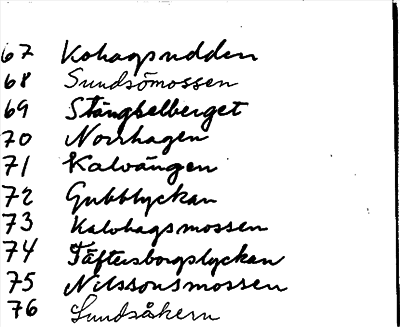 67 Kohagsudden
68 Sundsömossen
69 Stängselberget
70 Norrhagen
71 Kalvängen
72 Gubblyckan
73 Kalvhagsmossen
74 Täftersborgslyckan
75 Nilssonsmossen
76 Sundsåkern